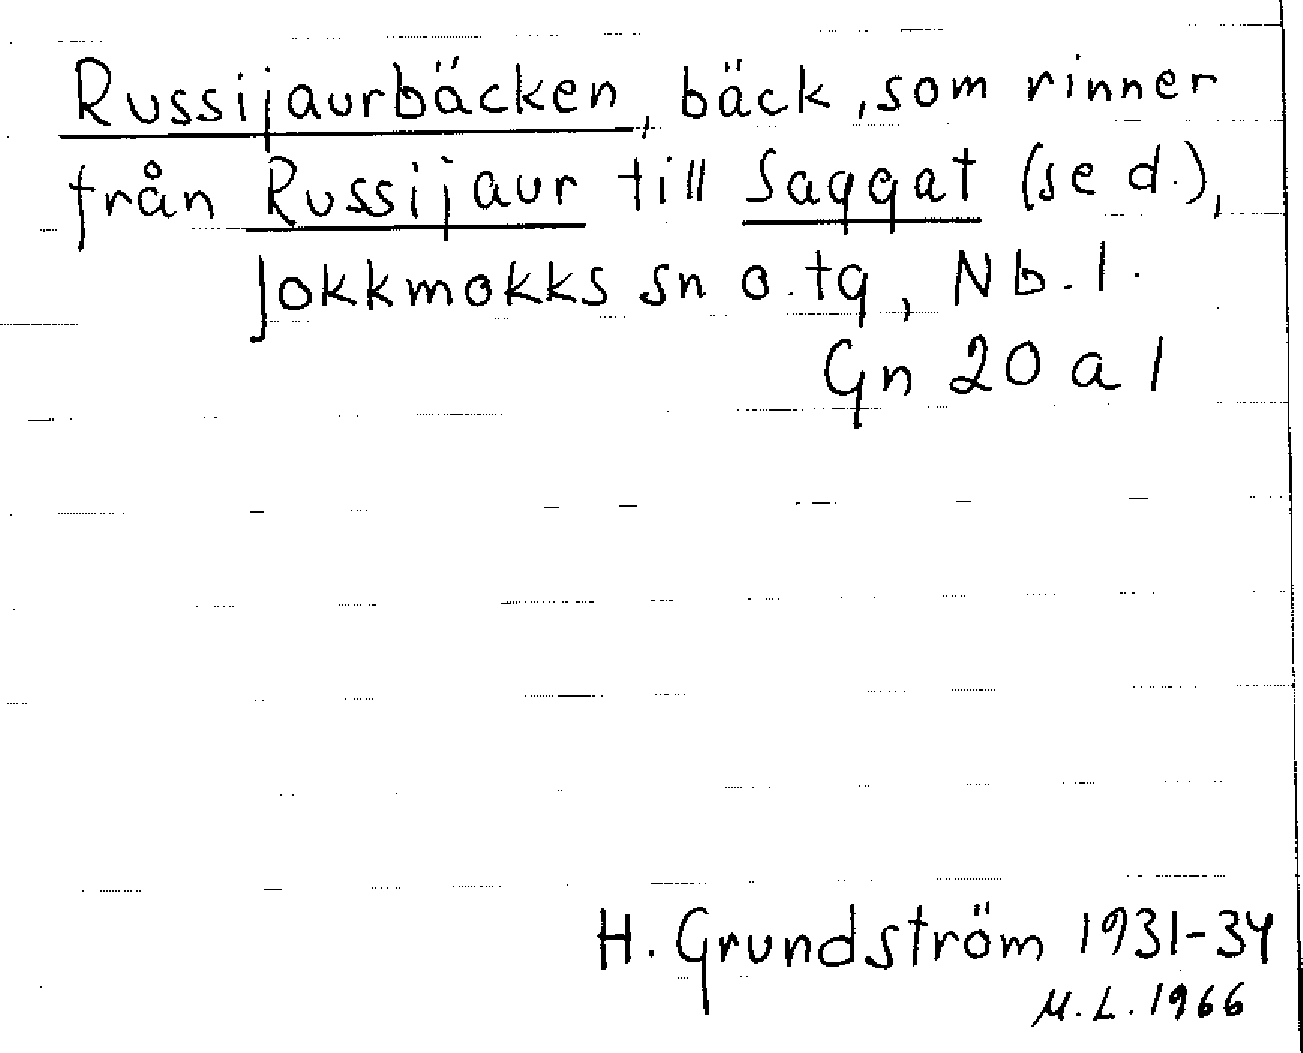 Russijaurbäcken, bäck, som rinner
från Russijaur till Saggat (se d.),
Jokkmokks sn o. tg, Nb. l.
Gn 20 a 1
H. Grundström 1931-34
M. L. 1966